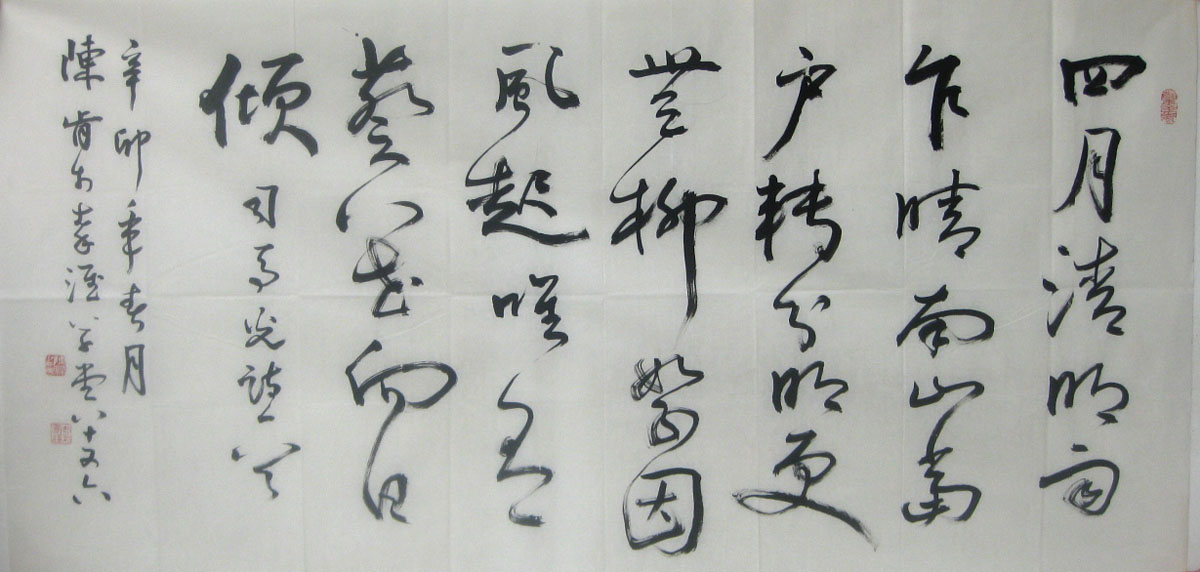 四月清明雨
乍晴南山當
户轉分明更
無柳絮因
風起唯有
葵花向日
傾 司馬光詩
辛卯年春月
陳肯於堂八十又六